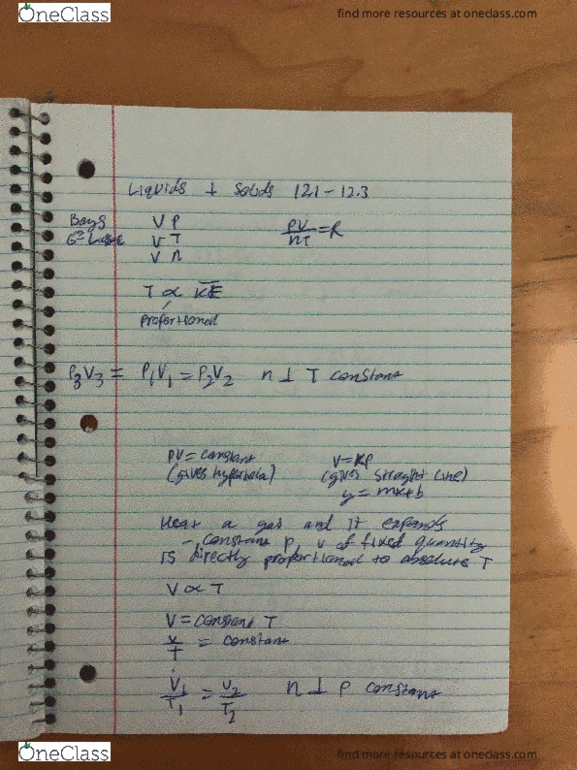 OneClass
find more resources at oneclass.com
Liquids + Solids 12.1-12.3
V P
V T
V n
PV/nT = R
T ∝ KE
proportional
P3V3 = P1V1 = P2V2 n + T constant
PV = constant
(gives hyperbola)
V = KP
(gives straight line)
y = mx+b
Heat a gas and it expands
- constant P, V of fixed quantity
is directly proportional to absolute T
V ∝ T
V = constant T
V/T = constant
V1/T1 = V2/T2 n + P constant
OneClass
find more resources at oneclass.com